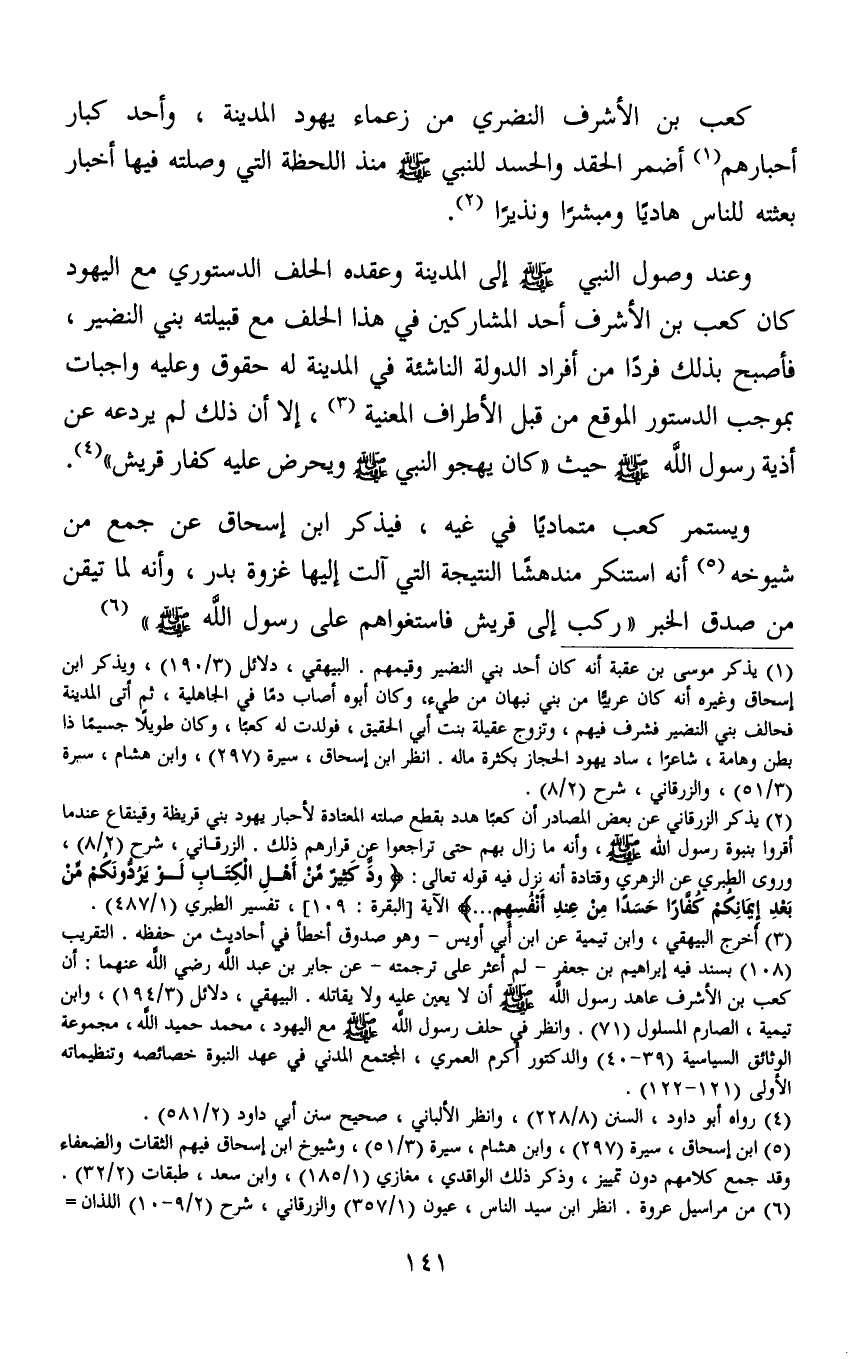 كعب بن الأشرف النضري من زعماء يهود المدينة ، وأحد كبار
أحبارهم(١) أضمر الحقد والحسد للنبي ﷺ منذ اللحظة التي وصلته فيها أخبار
بعثته للناس هاديًا ومبشرًا ونذيرًا (٢).
وعند وصول النبي ﷺ إلى المدينة وعقده الحلف الدستوري مع اليهود
كان كعب بن الأشرف أحد المشاركين في هذا الحلف مع قبيلته بني النضير ،
فأصبح بذلك فردًا من أفراد الدولة الناشئة في المدينة له حقوق وعليه واجبات
بموجب الدستور الموقع من قبل الأطراف المعنية (٣) ، إلا أن ذلك لم يردعه عن
أذية رسول اللَّه ﷺ حيث «كان يهجو النبي ﷺ ويحرض عليه كفار قريش»(٤).
ويستمر كعب متماديًا في غيه ، فيذكر ابن إسحاق عن جمع من
شيوخه(٥) أنه استنكر مندهشًا النتيجة التي آلت إليها غزوة بدر ، وأنه لما تيقن
من صدق الخبر «ركب إلى قريش فاستغواهم على رسول اللَّه ﷺ» (٦)
(١) يذكر موسى بن عقبة أنه كان أحد بني النضير وقيمهم . البيهقي ، دلائل (١٩٠/٣) ، ويذكر ابن
إسحاق وغيره أنه كان عربيًّا من بني نبهان من طيء، وكان أبوه أصاب دمًا في الجاهلية ، ثم أتى المدينة
فحالف بني النضير فشرف فيهم ، وتزوج عقيلة بنت أبي الحقيق ، فولدت له كعبًا ، وكان طويلًا جسيمًا ذا
بطن وهامة ، شاعرًا ، ساد يهود الحجاز بكثرة ماله . انظر ابن إسحاق ، سيرة (٢٩٧) ، وابن هشام ، سيرة
(٥١/٣) ، والزرقاني ، شرح (٨/٢) .
(٢) يذكر الزرقاني عن بعض المصادر أن كعبًا هدد بقطع صلته المعتادة لأحبار يهود بني قريظة وقينقاع عندما
أقروا بنبوة رسول الله ﷺ ، وأنه ما زال بهم حتى تراجعوا عن قرارهم ذلك . الزرقاني ، شرح (٨/٢) ،
وروى الطبري عن الزهري وقتادة أنه نزل فيه قوله تعالى : ﴿ ودَّ كَثِيرٌ مِّنْ أَهْلِ الْكِتَابِ لَوْ يَرُدُّونَكُمْ مِّنْ
بَعْدِ إِيمَانِكُمْ كُفَّارًا حَسَدًا مِنْ عِندِ أَنْفُسِهِم...﴾ الآية [البقرة : ١٠٩] ، تفسير الطبري (٤٨٧/١) .
(٣) أخرج البيهقي ، وابن تيمية عن ابن أبي أويس - وهو صدوق أخطأ في أحاديث من حفظه . التقريب
(١٠٨) بسند فيه إبراهيم بن جعفر - لم أعثر على ترجمته - عن جابر بن عبد اللَّه رضي اللَّه عنهما : أن
كعب بن الأشرف عاهد رسول اللَّه ﷺ أن لا يعين عليه ولا يقاتله . البيهقي ، دلائل (١٩٤/٣) ، وابن
تيمية ، الصارم المسلول (٧١) . وانظر في حلف رسول اللَّه ﷺ مع اليهود ، محمد حميد اللَّه ، مجموعة
الوثائق السياسية (٣٩-٤٠) والدكتور أكرم العمري ، المجتمع المدني في عهد النبوة خصائصه وتنظيماته
الأولى (١٢١-١٢٢) .
(٤) رواه أبو داود ، السنن (٢٢٨/٨) ، وانظر الألباني ، صحيح سنن أبي داود (٥٨١/٢) .
(٥) ابن إسحاق ، سيرة (٢٩٧) ، وابن هشام ، سيرة (٥١/٣) ، وشيوخ ابن إسحاق فيهم الثقات والضعفاء
وقد جمع كلامهم دون تمييز ، وذكر ذلك الواقدي ، مغازي (١٨٥/١) ، وابن سعد ، طبقات (٣٢/٢) .
(٦) من مراسيل عروة . انظر ابن سيد الناس ، عيون (٣٥٧/١) والزرقاني ، شرح (٩/٢-١٠) اللذان =
١٤١